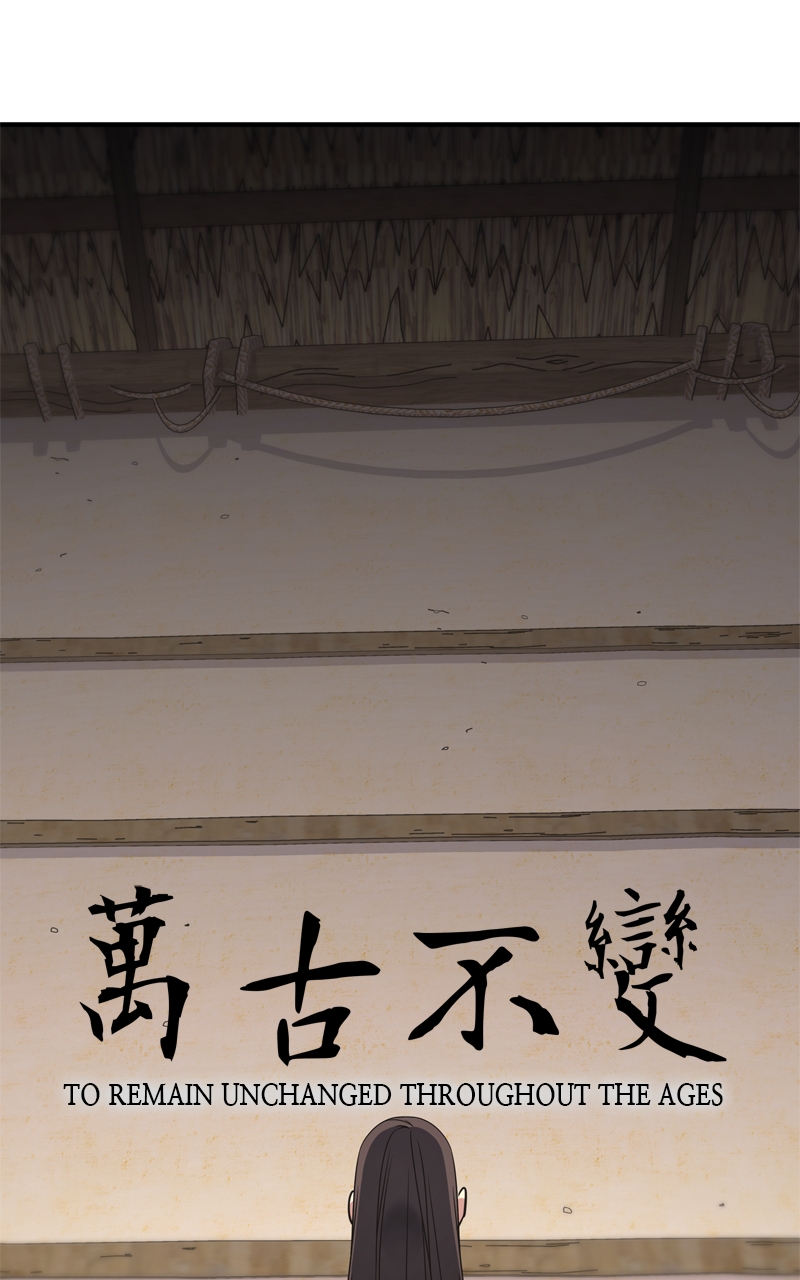 萬古不變
TO REMAIN UNCHANGED THROUGHOUT THE AGES